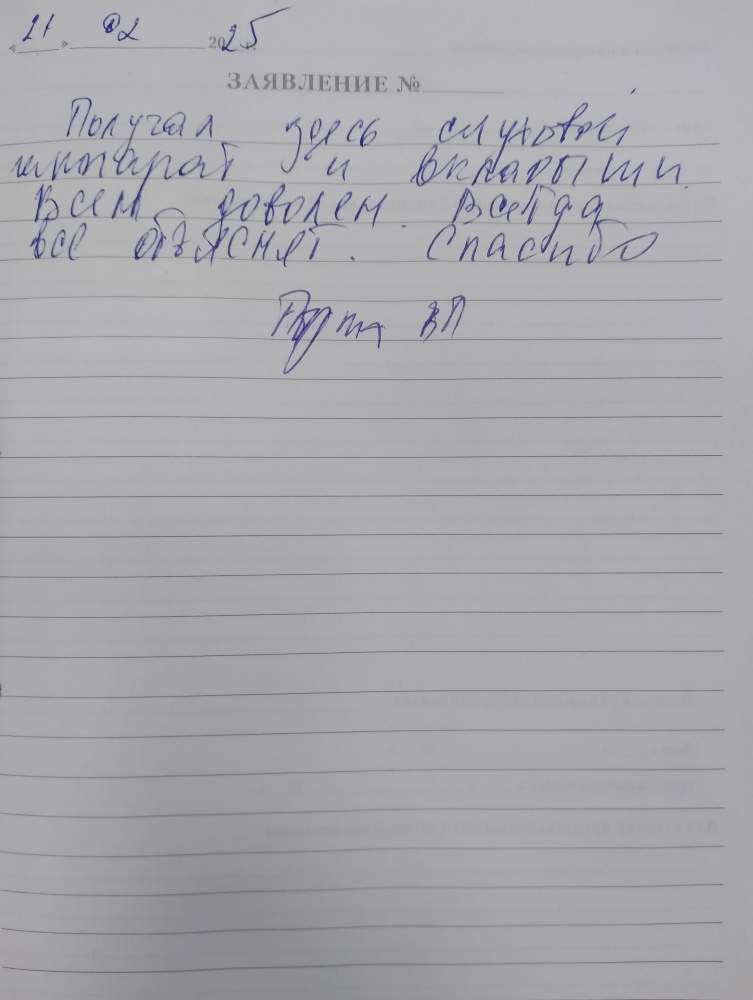 « 21 » 02 2025 г.
ЗАЯВЛЕНИЕ №
Получал здесь слуховой
аппарат и вкладыши.
Всем доволен. Всегда
все объяснят. Спасибо
ВП